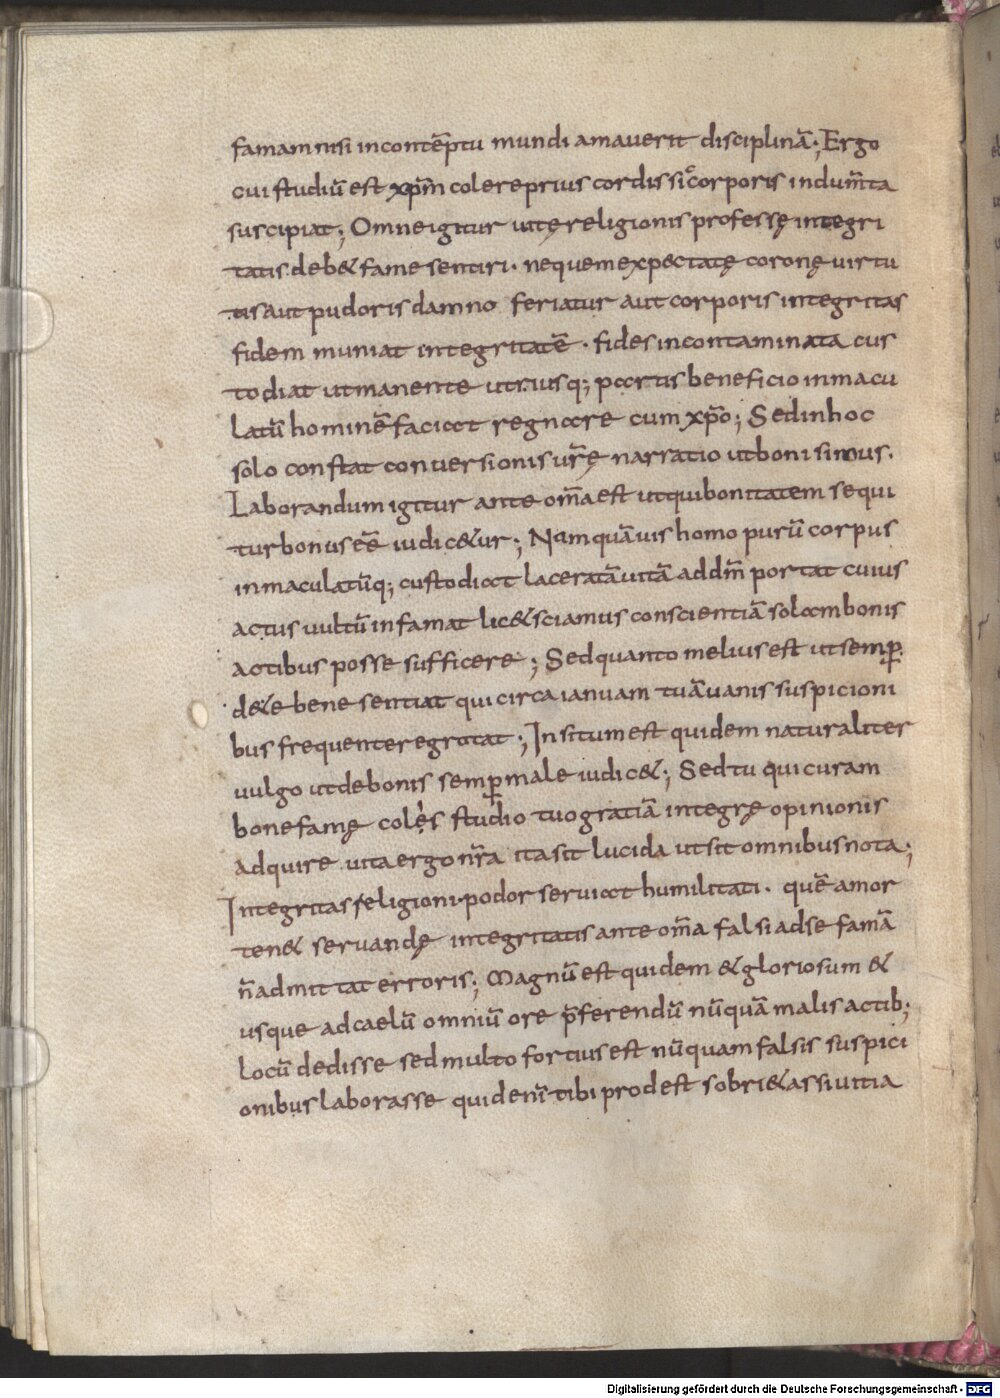 famam nisi in contēptu mundi amauerit disciplinā; Ergo
cui studiū est xp̄m colere prius cordis sic corporis indum̄ta
suscipiat; Omne igitur uitę religionis professę integri
tatis deb& fame sentiri· neque me xp&ctatę coronę uirtu
tis aut pudoris damno feriatur aut corporis integritas
fidem muniat integritatē· fides incontaminata cus
todiat ut manente utriusq; partis beneficio inmacu
latū hominē faciat regnare cum xp̄o; Sed in hoc
solo constat conuersionis ur̄ę narratio ut boni simus.
Laborandum igitur ante om̄a est ut qui bonitatem sequi
tur bonus eē iudic&ur; Nam quāuis homo purū corpus
inmaculatūq; custodiat laceratā uitā ad dm̄ portat cuius
actus uultū infamat lic& sciamus conscientiā solam bonis
actibus posse sufficere; Sed quanto melius est ut semp̱
de te bene sentiat qui circa ianuam tuā uanis suspicioni
bus frequenter egrotat; Insitum est quidem naturaliter
uulgo ut de bonis semp̱ male iudic&; Sed tu qui curam
bone famę colęs studio tuo gratiā integrę opinionis
adquire uita ergo nr̄a ita sit lucida ut sit omnibus nota;
Integritas religioni· podor seruiat humilitati· quē amor
ten& seruandę integritatis ante om̄a falsi ad se famā
n̄ admittat erroris; Magnū est quidem & gloriosum &
usque ad caelū omniū ore p̄ferendū nūquā malis actib;
locū dedisse sed multo fortius est nūquam falsis suspici
onibus laborasse quid eni̅ tibi prodest sobri&as si uitia